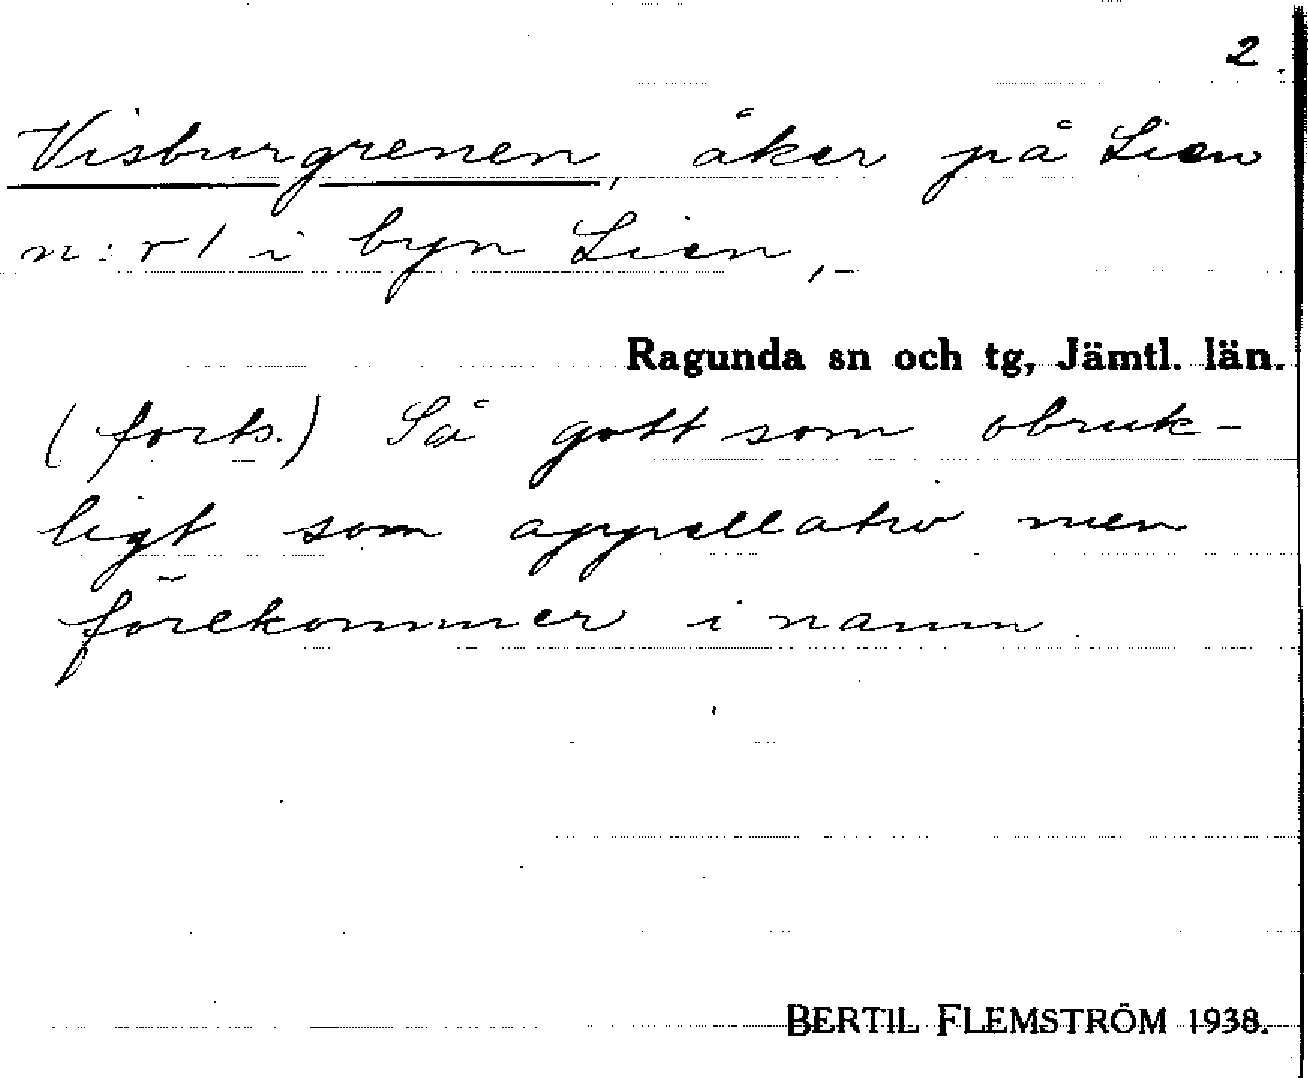 2.
Visburgrenen, åker på Lien
n:r 1 i byn Lien,
Ragunda sn och tg, Jämtl. län.
(forts.) Så gott som obruk-
ligt som appellativ men
förekommer i namn
BERTIL FLEMSTRÖM 1938.